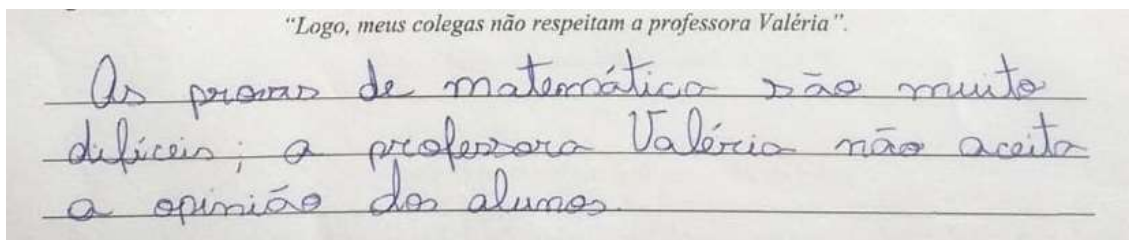 "Logo, meus colegas não respeitam a professora Valéria".
As provas de matemática são muito
difíceis; a professora Valéria não aceita
a opinião dos alunos.